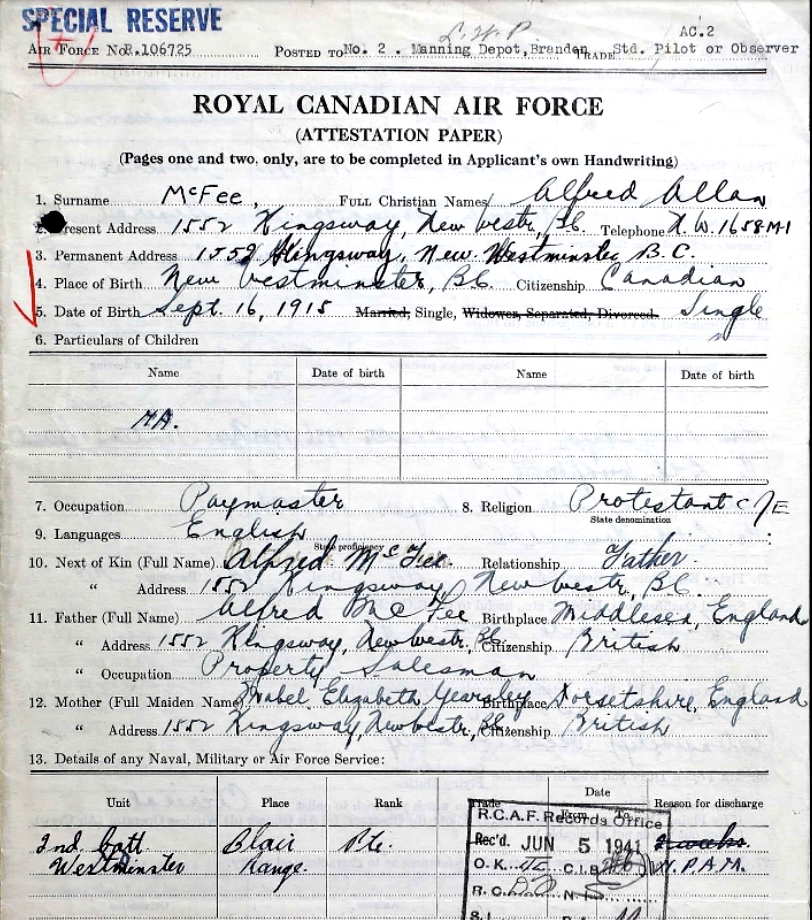 SPECIAL RESERVE
L.W.P
AC.2
AIR FORCE NO. R.106725 POSTED TO No. 2. Manning Depot, Brandon TRADE Std. Pilot or Observer
ROYAL CANADIAN AIR FORCE
(ATTESTATION PAPER)
(Pages one and two, only, are to be completed in Applicant's own Handwriting)
1. Surname McFee, FULL Christian Names Alfred Allan
2. Present Address 1552 Kingsway, New Westr, B.C. Telephone N.W. 1658-M-1
3. Permanent Address 1552 Kingsway, New Westminster B.C.
4. Place of Birth New Westminster, B.C. Citizenship Canadian
5. Date of Birth Sept. 16, 1915 Married, Single, Widower, Separated, Divorced. Single
6. Particulars of Children
Name Date of birth Name Date of birth
N.A.
7. Occupation Paymaster 8. Religion Protestant C/E
State denomination
9. Languages English
State proficiency
10. Next of Kin (Full Name) Alfred McFee. Relationship Father
" Address 1552 Kingsway, New Westr, B.C.
11. Father (Full Name) Alfred McFee Birthplace Middlesex, England
" Address 1552 Kingsway, New Westr, B.C. Citizenship British
" Occupation Property Salesman
12. Mother (Full Maiden Name) Mabel Elizabeth Yearsley Birthplace Dorsetshire, England
" Address 1552 Kingsway, New Westr, B.C. Citizenship British
13. Details of any Naval, Military or Air Force Service:
Unit Place Rank Trade Date Reason for discharge
From To
R.C.A.F. Records Office
2nd. batt Blair Pte. Rec'd. JUN 5 1941 2 weeks
Westminster Range. O.K. C.I.B. N.P.A.M.
R.C. N.S
S.I.